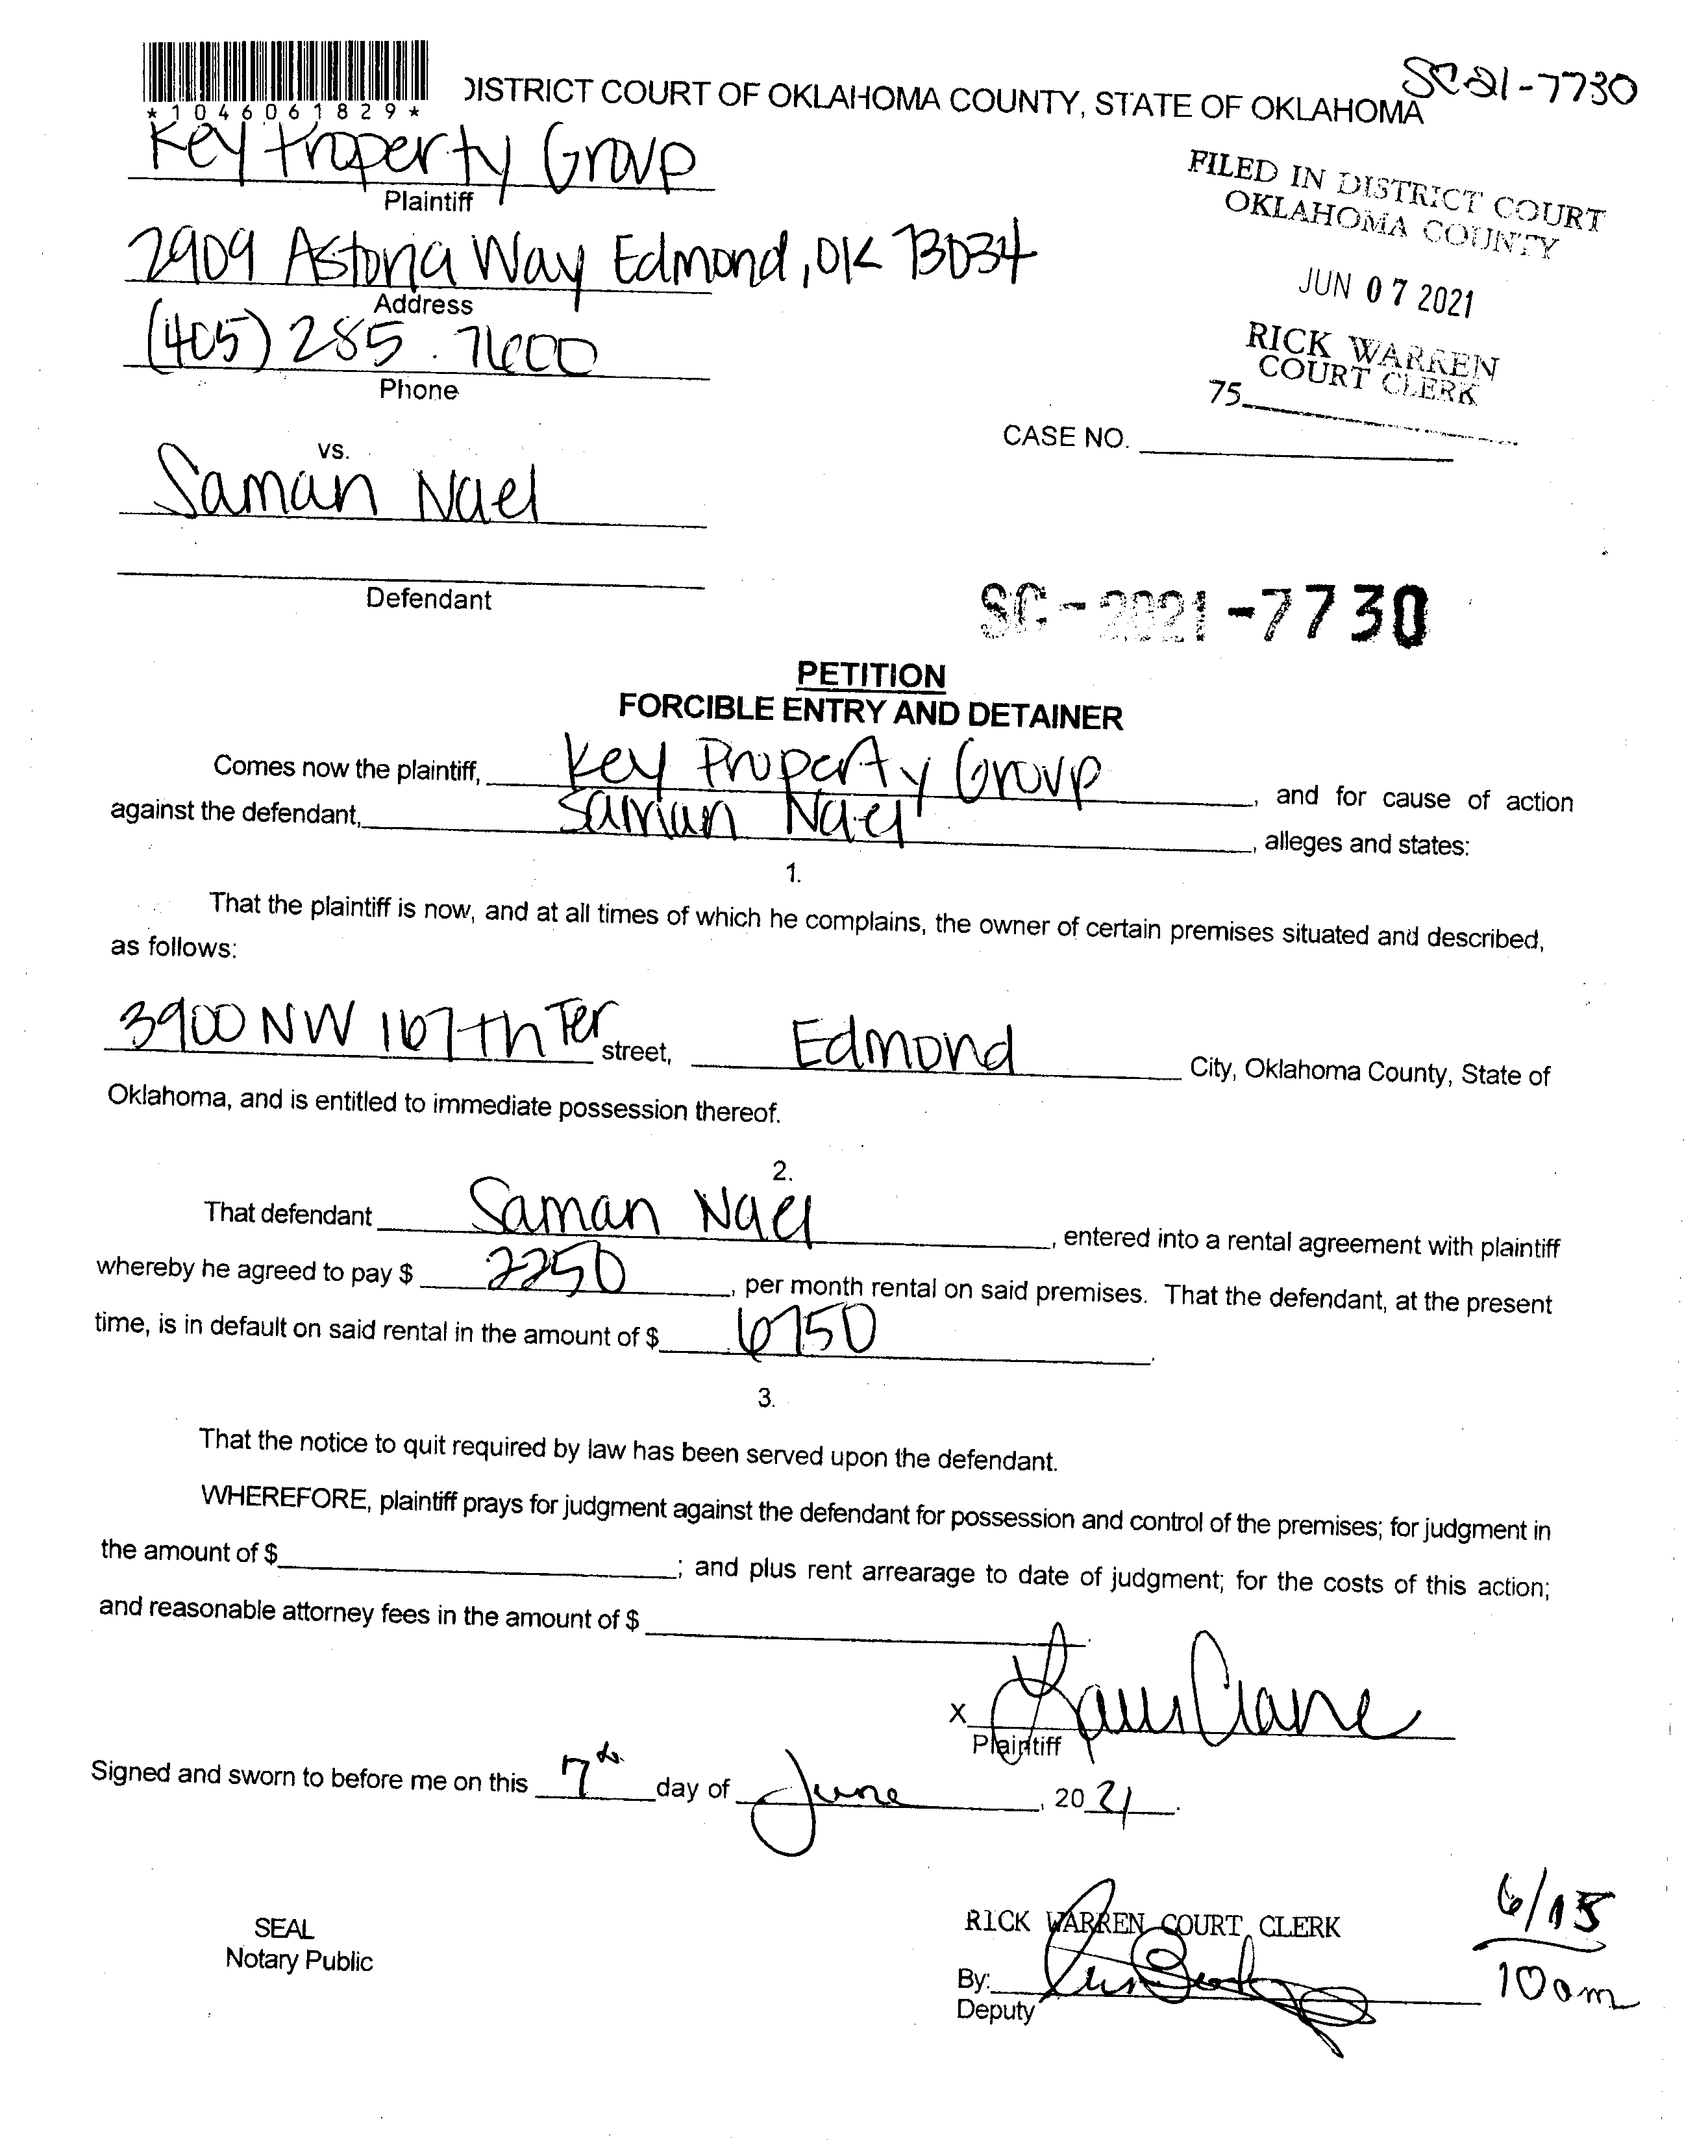 SC-21-7730
*1046061829*
DISTRICT COURT OF OKLAHOMA COUNTY, STATE OF OKLAHOMA
Key Property Group
Plaintiff
2909 Astoria Way Edmond, OK 73034
Address
(405) 285.7600
Phone
FILED IN DISTRICT COURT
OKLAHOMA COUNTY
JUN 07 2021
RICK WARREN
COURT CLERK
75
CASE NO.
vs.
Saman Nael
Defendant
SC-2021-7730
PETITION
FORCIBLE ENTRY AND DETAINER
Comes now the plaintiff, Key Property Group, and for cause of action
against the defendant, Saman Nael, alleges and states:
1.
That the plaintiff is now, and at all times of which he complains, the owner of certain premises situated and described,
as follows:
3900 NW 167th Ter street, Edmond City, Oklahoma County, State of
Oklahoma, and is entitled to immediate possession thereof.
2.
That defendant Saman Nael, entered into a rental agreement with plaintiff
whereby he agreed to pay $ 2250, per month rental on said premises. That the defendant, at the present
time, is in default on said rental in the amount of $ 6750.
3.
That the notice to quit required by law has been served upon the defendant.
WHEREFORE, plaintiff prays for judgment against the defendant for possession and control of the premises; for judgment in
the amount of $; and plus rent arrearage to date of judgment; for the costs of this action;
and reasonable attorney fees in the amount of $.
X
Plaintiff
Signed and sworn to before me on this 7th day of June, 2021.
SEAL
Notary Public
RICK WARREN COURT CLERK
By:
Deputy
6/15
10am